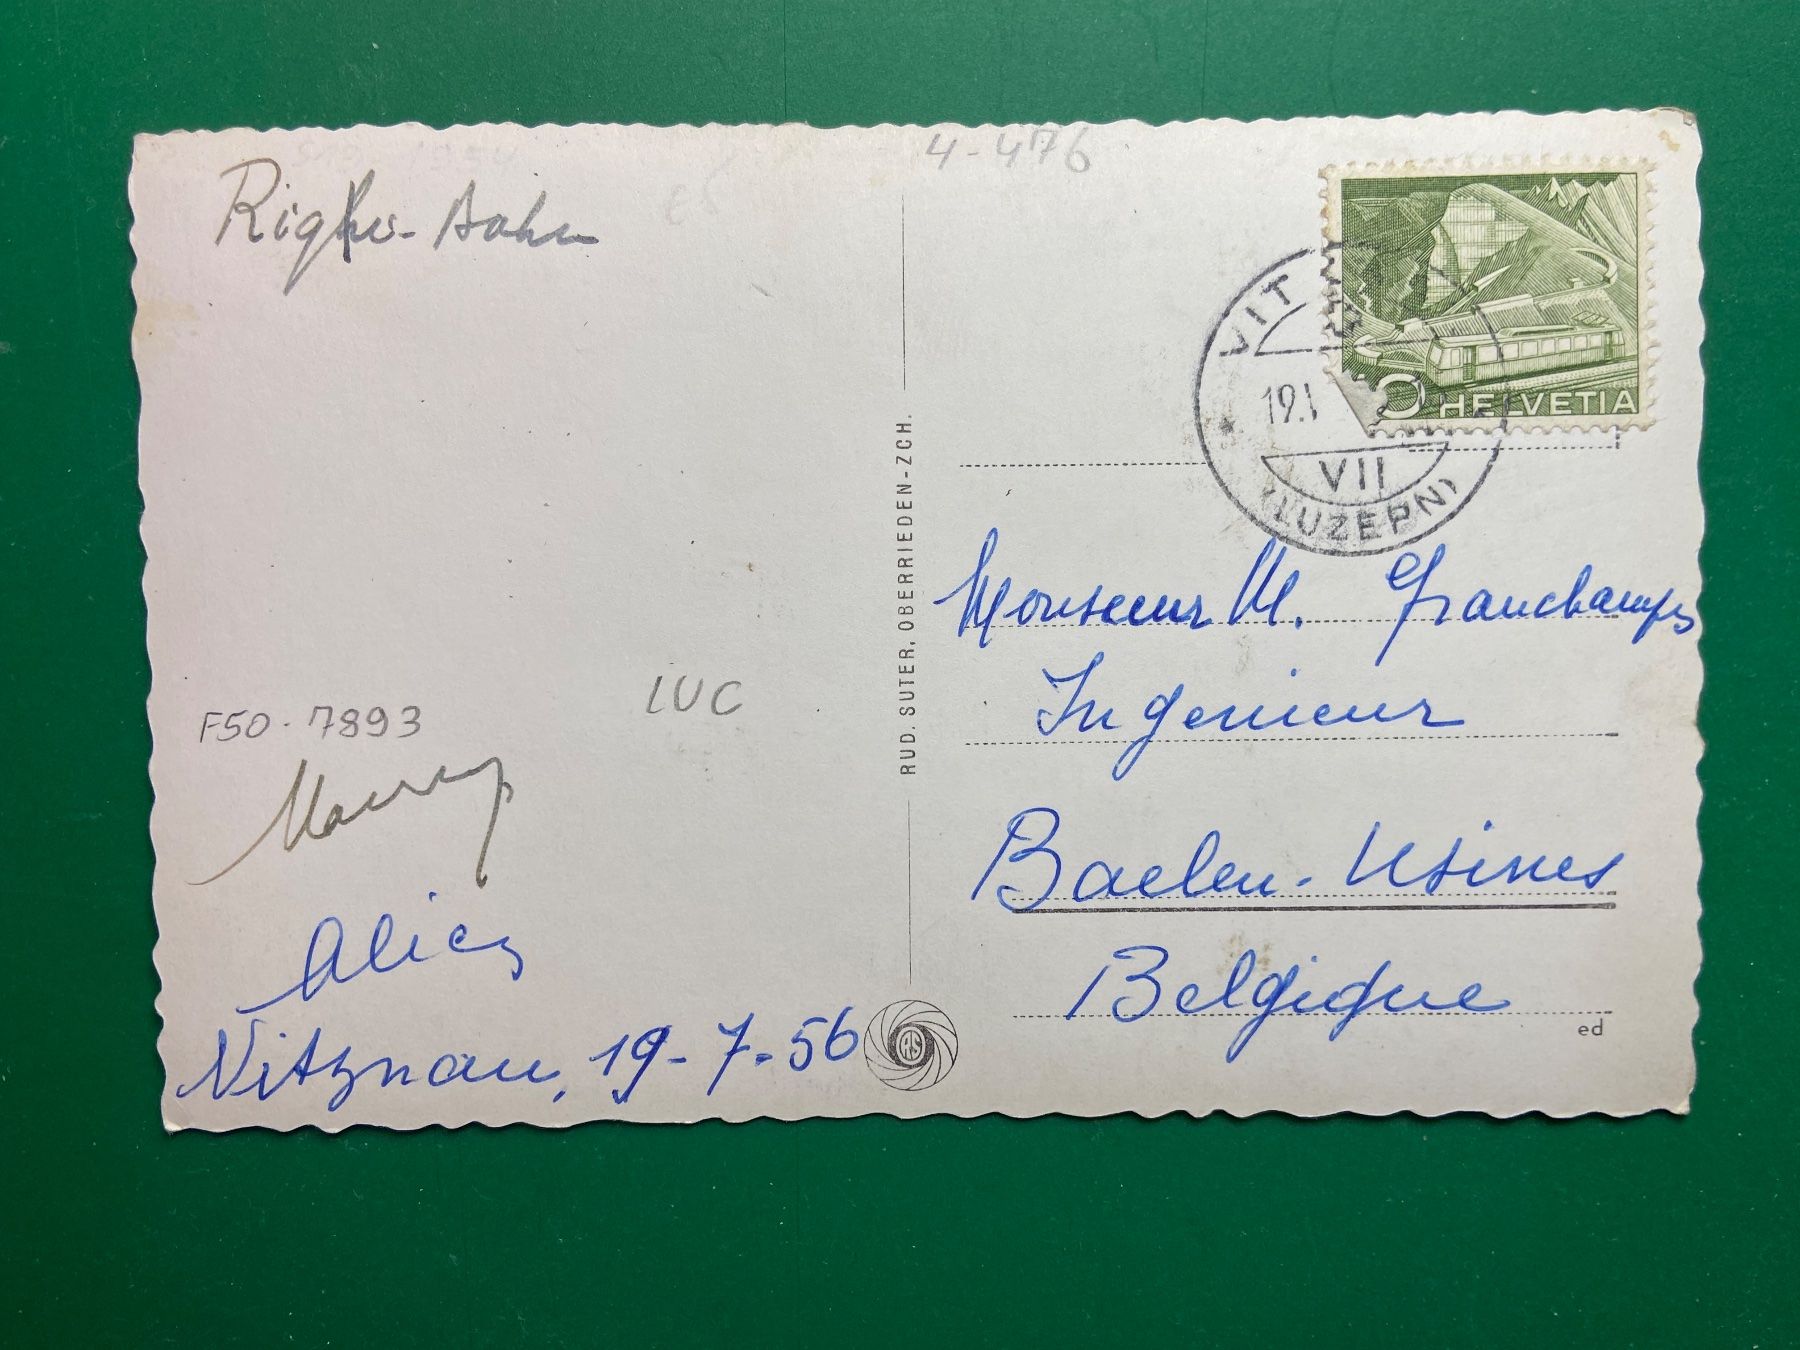 4-476
Righi-Bahn
HELVETIA
VIT
19.
VII
(LUZERN)
RUD. SUTER, OBERRIEDEN-ZCH.
Monsieur M. Granchamps
Ingenieur
Baelen-Usines
Belgique
LUC
F50-7893
Alice
Vitznau, 19-7-56
RS
ed